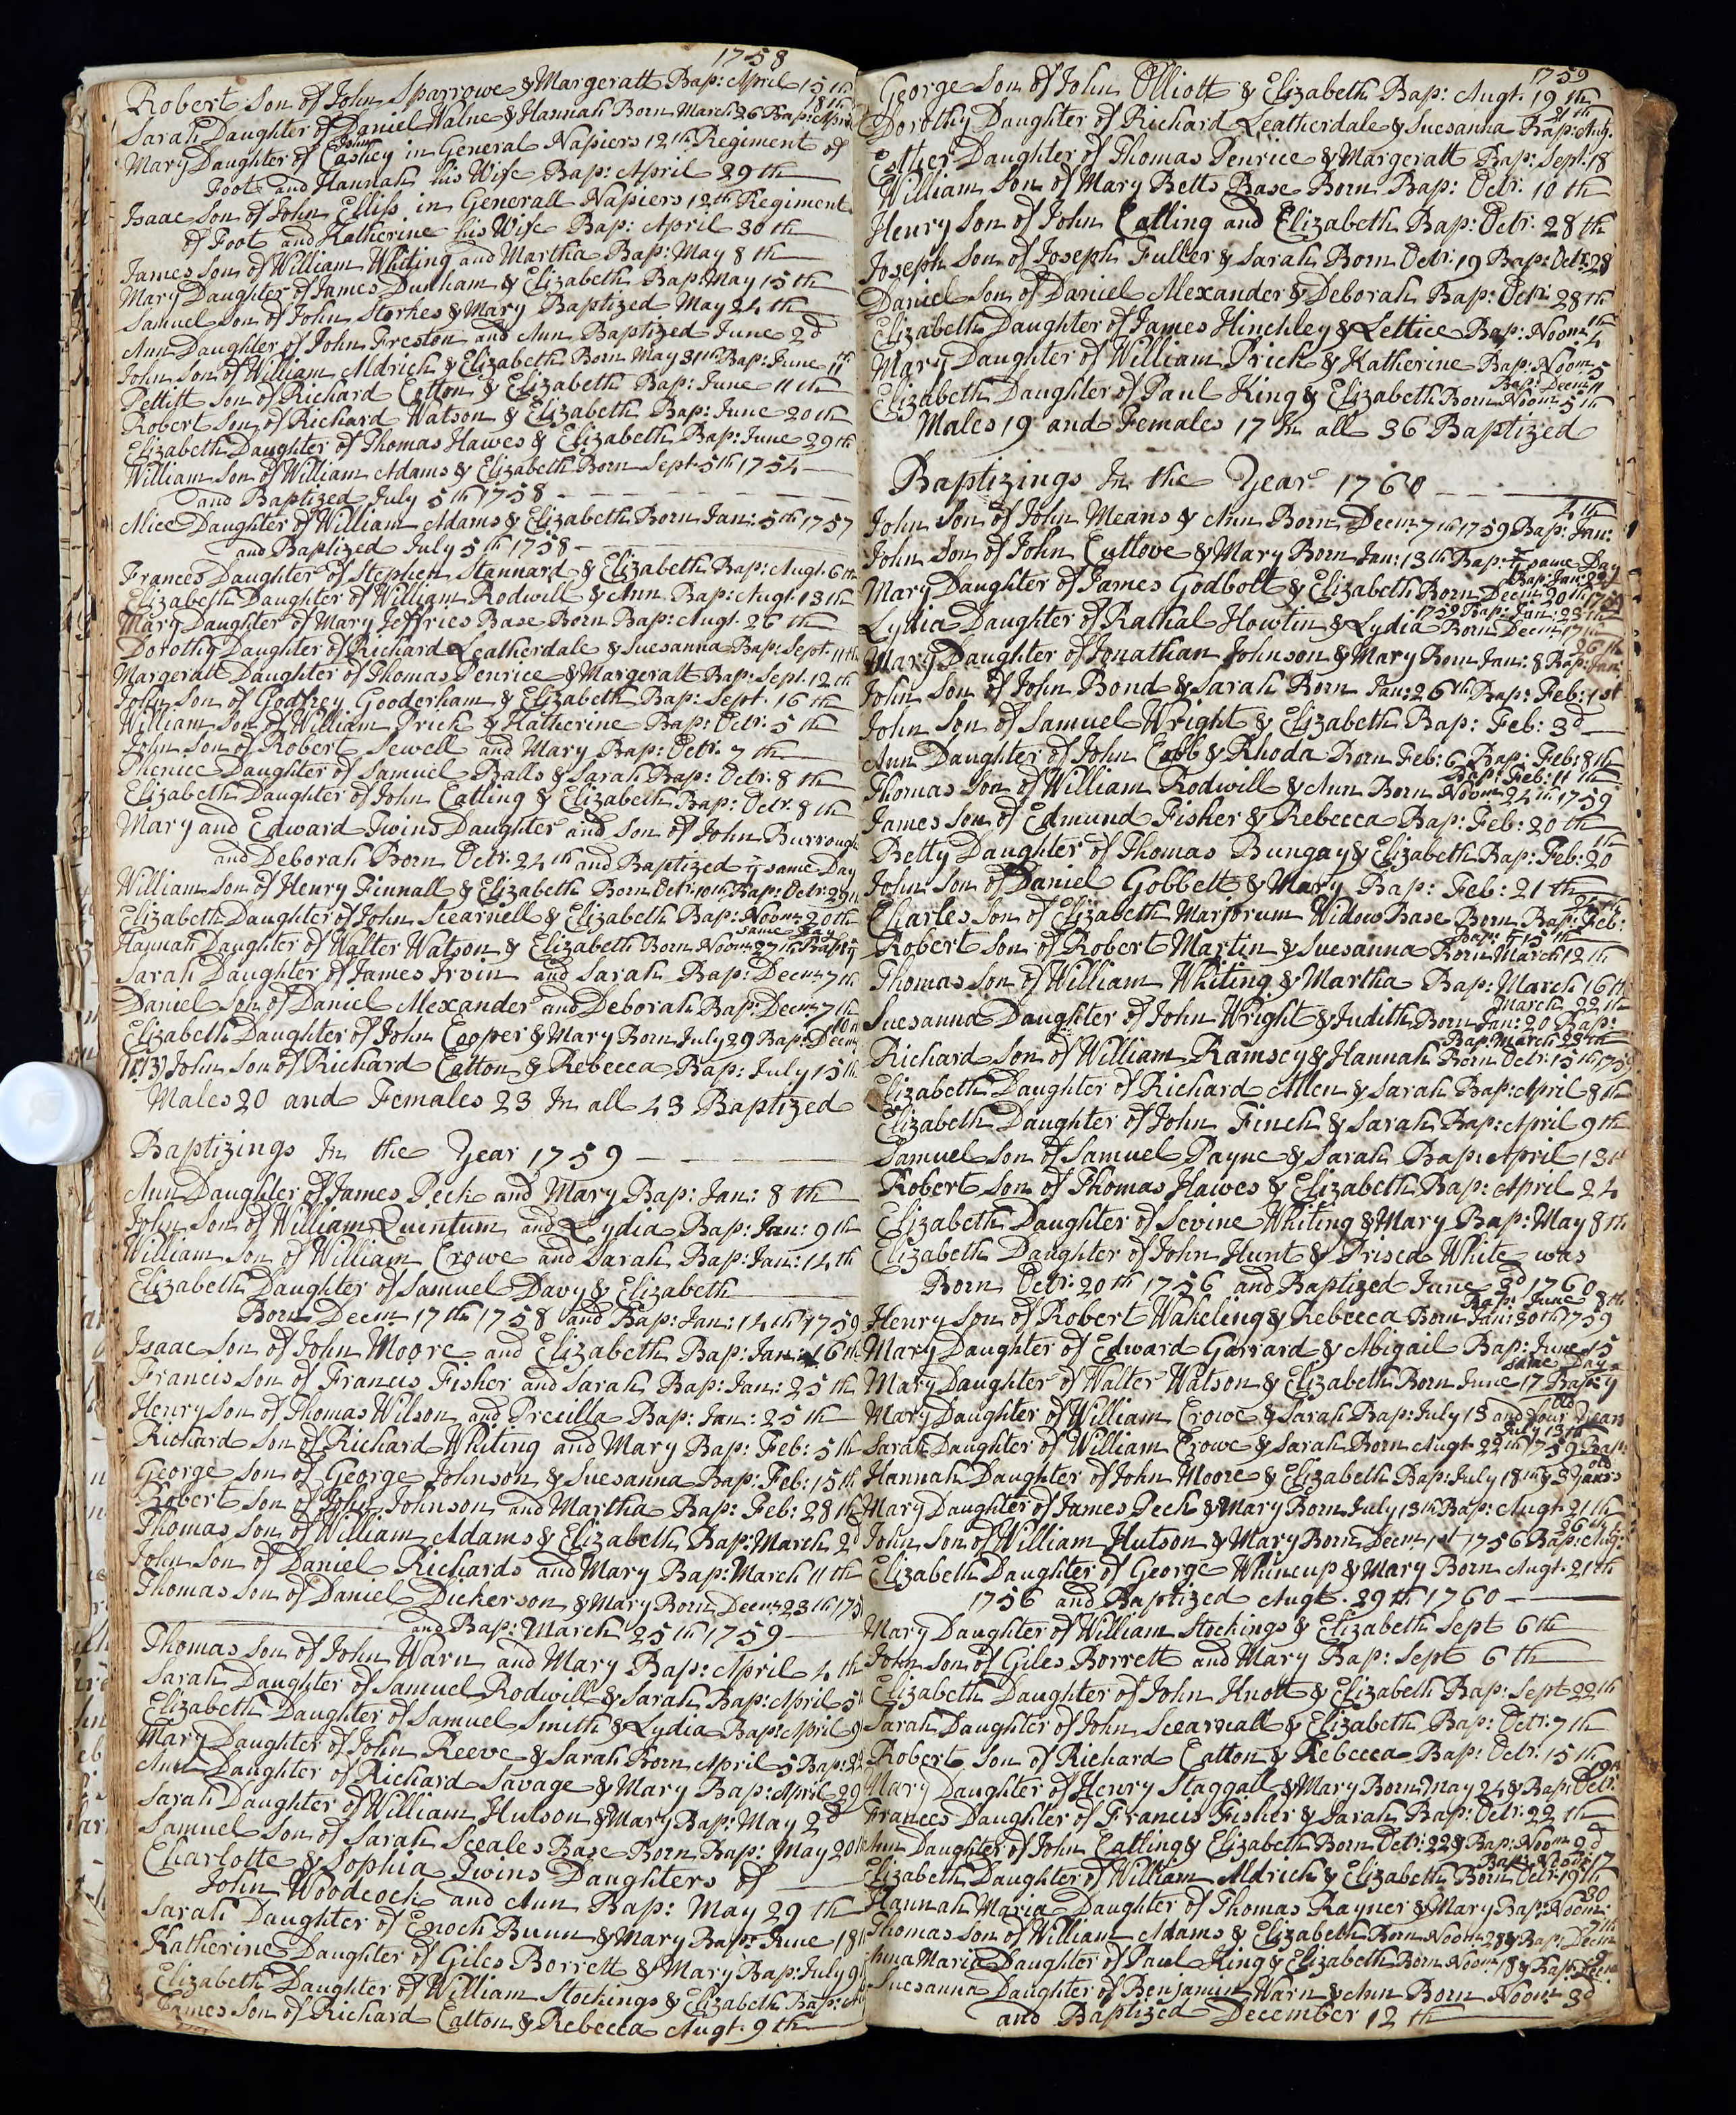 1758
Robert Son of John Sparrowe & Margeratt Bap: April 15th
18th
Sarah Daughter of Daniel Walne & Hannah Born March 26 Bap: April
John
Mary Daughter of Caskey in General Napiers 12th Regiment of
Foot and Hannah his Wife Bap: April 29th
Isaac Son of John Elliss in Generall Napiers 12th Regiment
of Foot and Katherine his Wife Bap: April 30th
James Son of William Whiting and Martha Bap: May 8th
Mary Daughter of James Dunham & Elizabeth Bap: May 15th
Samuel Son of John Storkes & Mary Baptized May 24th
Ann Daughter of John Freston and Ann Baptized June 2d
John Son of William Aldrich & Elizabeth Born May 31th Bap: June 11th
Pettitt Son of Richard Catton & Elizabeth Bap: June 11th
Robert Son of Richard Watson & Elizabeth Bap: June 20th
Elizabeth Daughter of Thomas Hawes & Elizabeth Bap: June 29th
William Son of William Adams & Elizabeth Born Sept. 5th 1754
and Baptized July 5th 1758
Alice Daughter of William Adams & Elizabeth Born Jan: 5th 1757
and Baptized July 5th 1758
Frances Daughter of Stephen Stannard & Elizabeth Bap: Augt. 6th
Elizabeth Daughter of William Rodwill & Ann Bap: Augt. 13th
Mary Daughter of Mary Jeffries Base Born Bap: Augt. 26th
Dorothy Daughter of Richard Leatherdale & Suesanna Bap: Sept. 11th
Margeratt Daughter of Thomas Penrice & Margeratt Bap: Sept. 12th
John Son of Godfrey Gooderham & Elizabeth Bap: Sept. 16th
William Son of William Prick & Katherine Bap: Octr. 5th
John Son of Robert Sewell and Mary Bap: Octr. 7th
Phenice Daughter of Samuel Balls & Sarah Bap: Octr. 8th
Elizabeth Daughter of John Catling & Elizabeth Bap: Octr. 8th
Mary and Edward Twins Daughter and Son of John Burrough
and Deborah Born Octr. 24th and Baptized ye same Day
William Son of Henry Finnall & Elizabeth Born Octr: 10th Bap: Octr: 29th
Elizabeth Daughter of John Scearnell & Elizabeth Bap: Novm: 20th
same Day
Hannah Daughter of Walter Watson & Elizabeth Born Novm: 27th Bap: ye
Sarah Daughter of James Irvin and Sarah Bap: Decm: 7th
Daniel Son of Daniel Alexander and Deborah Bap: Decm: 7th
10th
Elizabeth Daughter of John Cooper & Mary Born July 29 Bap: Decm:
John Son of Richard Catton & Rebecca Bap: July 15th
Males 20 and Females 23 In all 43 Baptized
Baptizings In the Year 1759
Ann Daughter of James Peck and Mary Bap: Jan: 8th
John Son of William Quintum and Lydia Bap: Jan: 9th
William Son of William Crowe and Sarah Bap: Jan: 14th
Elizabeth Daughter of Samuel Davy & Elizabeth
Born Decm 17th 1758 and Bap: Jan: 14th 1759
Isaac Son of John Moore and Elizabeth Bap: Jan: 16th
Francis Son of Francis Fisher and Sarah Bap: Jan: 25th
Henry Son of Thomas Wilson and Precilla Bap: Jan: 25th
Richard Son of Richard Whiting and Mary Bap: Feb: 5th
George Son of George Johnson & Suesanna Bap: Feb: 15th
Robert Son of John Johnson and Martha Bap: Feb: 28th
Thomas Son of William Adams & Elizabeth Bap: March 2d
John Son of Daniel Richards and Mary Bap: March 11th
Thomas Son of Daniel Dickerson & Mary Born Decm: 23th 175
and Bap: March 25th 1759
Thomas Son of John Warn and Mary Bap: April 4th
Sarah Daughter of Samuel Rodwill & Sarah Bap: April 5
Elizabeth Daughter of Samuel Smith & Lydia Bap: April 9
Mary Daughter of John Reeve & Sarah Born April 5 Bap: 22
Ann Daughter of Richard Savage & Mary Bap: April 29
Sarah Daughter of William Hutson & Mary Bap: May 2d
Samuel Son of Sarah Sceales Base Born Bap: May 20th
Charlotte & Sophia Twins Daughters of
John Woodcock and Ann Bap: May 29th
Sarah Daughter of Enoch Bunn & Mary Bap: June 18
Katherine Daughter of Giles Borrett & Mary Bap: July 9
Elizabeth Daughter of William Stockings & Elizabeth Bap:
James Son of Richard Catton & Rebecca Augt. 9th
1759
George Son of John Olliott & Elizabeth Bap: Augt. 19th
21th
Dorothy Daughter of Richard Leatherdale & Suesanna Bap: Aug.
Esther Daughter of Thomas Penrice & Margeratt Bap: Sept. 18
William Son of Mary Betts Base Born Bap: Octr: 10th
Henry Son of John Catling and Elizabeth Bap: Octr: 28th
Joseph Son of Joseph Fuller & Sarah Born Octr: 19 Bap: Octr. 28
Daniel Son of Daniel Alexander & Deborah Bap: Octr: 28th
Elizabeth Daughter of James Hinchley & Lettice Bap: Novm: 4th
Mary Daughter of William Prick & Katherine Bap: Novm: 5
Bap: Decm: 11
Elizabeth Daughter of Paul King & Elizabeth Born Novm: 5th
Males 19 and Females 17 In all 36 Baptized
Baptizings In the Year 1760
4th
John Son of John Means & Ann Born Decm: 7th 1759 Bap: Jan:
John Son of John Cutlove & Mary Born Jan: 13th Bap: ye same Day
Bap: Jan: 22d
Mary Daughter of James Godbolt & Elizabeth Born Decm: 20th 1759
1759 Bap: Jan: 23th
Lydia Daughter of Rathal Howtin & Lydia Born Decm: 17th
26th
Mary Daughter of Jonathan Johnson & Mary Born Jan: 8 Bap: Jan:
John Son of John Bond & Sarah Born Jan: 26th Bap: Feb: 1st
John Son of Samuel Wright & Elizabeth Bap: Feb: 3d
Ann Daughter of John Cobb & Rhoda Born Feb: 6 Bap: Feb: 8th
Bap: Feb: 11th
Thomas Son of William Rodwill & Ann Born Novm: 24th 1759
James Son of Edmund Fisher & Rebecca Bap: Feb: 20th
Betty Daughter of Thomas Bungay & Elizabeth Bap: Feb: 20th
John Son of Daniel Gobbett & Mary Bap: Feb: 21th
Charles Son of Elizabeth Marjorum Widow Base Born Bap: Feb:
Bap: ye 15th
Robert Son of Robert Martin & Suesanna Born March 12th
Thomas Son of William Whiting & Martha Bap: March 16th
March 22th
Suesanna Daughter of John Wright & Judith Born Jan: 20 Bap:
Bap: March 28th
Richard Son of William Ramsey & Hannah Born Octr: 15th 1759
Elizabeth Daughter of Richard Allen & Sarah Bap: April 8th
Elizabeth Daughter of John Finch & Sarah Bap: April 9th
Samuel Son of Samuel Payne & Sarah Bap: April 13th
Robert Son of Thomas Hawes & Elizabeth Bap: April 24
Elizabeth Daughter of Sevine Whiting & Mary Bap: May 8th
Elizabeth Daughter of John Hunt & Prisca White was
Born Octr: 20th 1756 and Baptized June 3d 1760
Bap: June 8th
Henry Son of Robert Wakeling & Rebecca Born Jan: 30th 1759
Mary Daughter of Edward Garrard & Abigail Bap: June 15
same Day
Mary Daughter of Walter Watson & Elizabeth Born June 17 Bap: ye
old
Mary Daughter of William Crowe & Sarah Bap: July 13 and four Years
July 13th
Sarah Daughter of William Crowe & Sarah Born Augt. 22th 1759 Bap:
old
Hannah Daughter of John Moore & Elizabeth Bap: July 18th & 3 Years
Mary Daughter of James Peck & Mary Born July 13th Bap: Augt. 21th
26th
John Son of William Hutson & Mary Born Decm: 1st 1756 Bap: Aug:
Elizabeth Daughter of George Whincup & Mary Born Augt. 21th
1756 and Baptized Augt. 29th 1760
Mary Daughter of William Stockings & Elizabeth Sept 6th
John Son of Giles Borrett and Mary Bap: Sept 6th
Elizabeth Daughter of John Knott & Elizabeth Bap: Sept 22th
Sarah Daughter of John Scearnall & Elizabeth Bap: Octr: 7th
Robert Son of Richard Catton & Rebecca Bap: Octr: 15th
19th
Mary Daughter of Henry Staggall & Mary Born May 24 & Bap: Octr:
Frances Daughter of Francis Fisher & Sarah Bap: Octr: 22th
Ann Daughter of John Catling & Elizabeth Born Octr: 22 & Bap: Novm 9d
Bap: Novm: 17
Elizabeth Daughter of William Aldrich & Elizabeth Born Octr: 19th
30
Hannah Maria Daughter of Thomas Rayner & Mary Bap: Novm:
7th
Thomas Son of William Adams & Elizabeth Born Novm: 28 & Bap: Decm
Anna Maria Daughter of Paul King & Elizabeth Born Novm: 18 & Bap: Decm
Suesanna Daughter of Benjamin Warn & Ann Born Novm: 3d
and Baptized December 12th